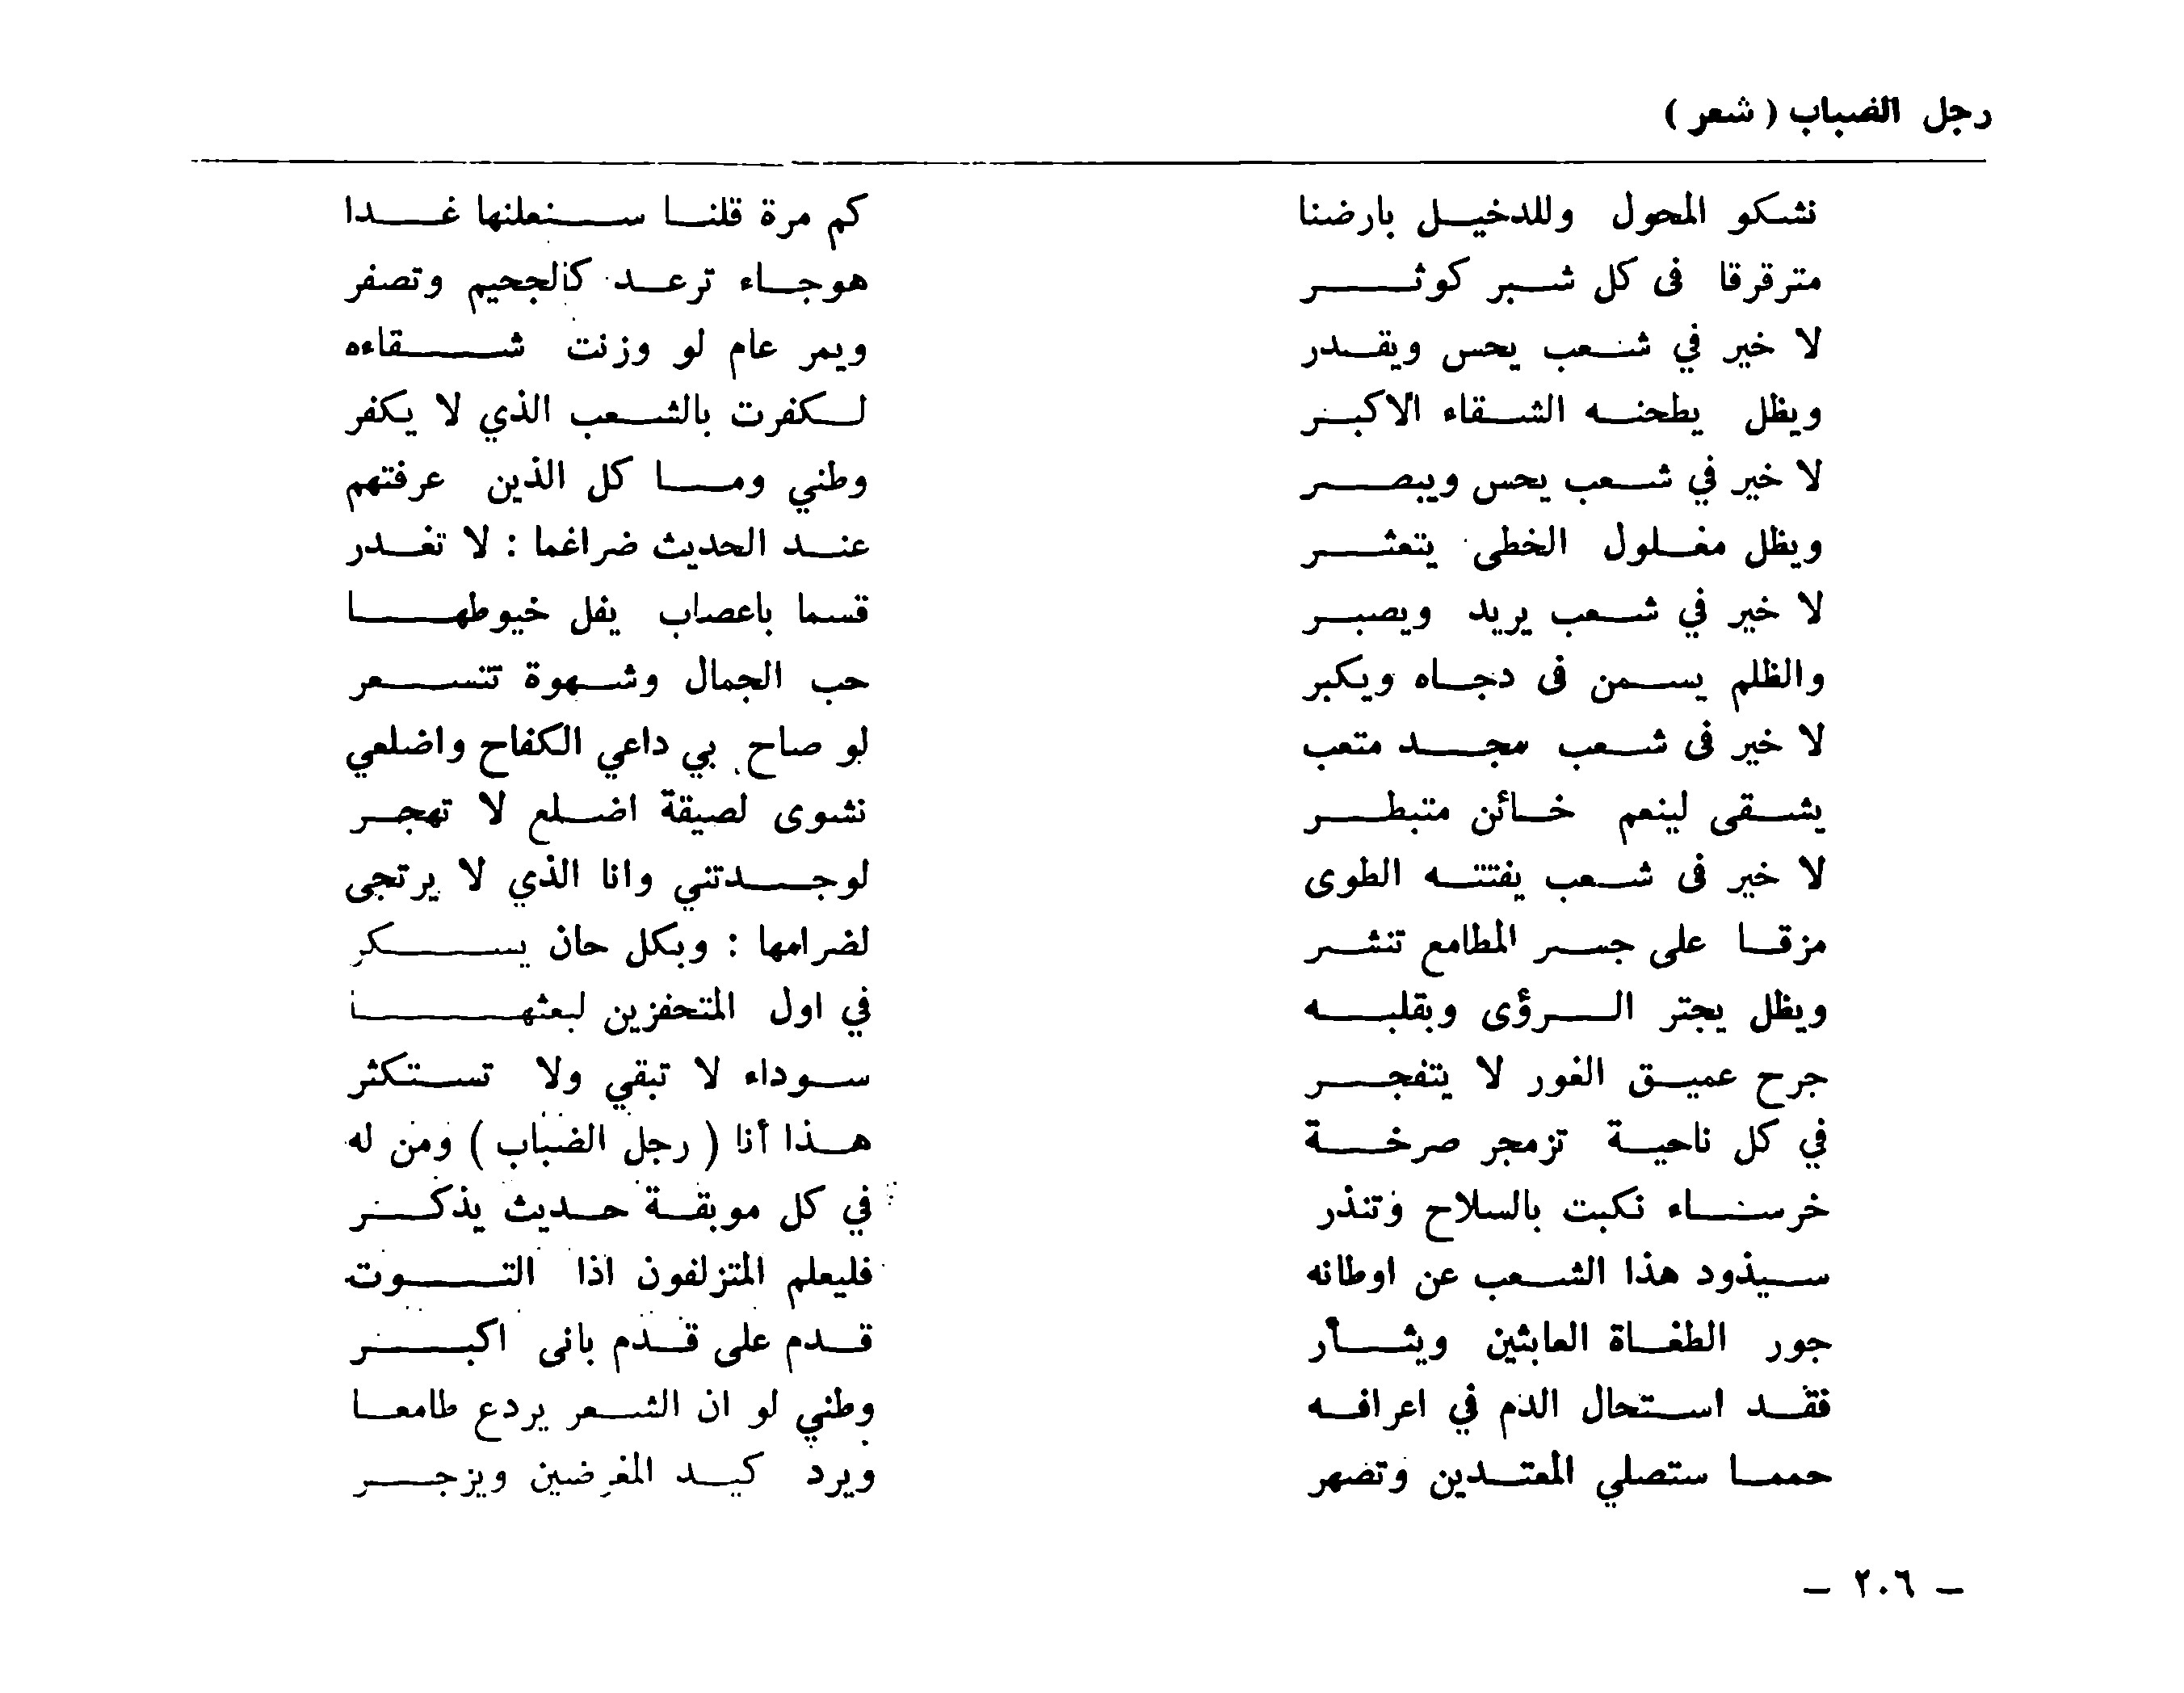 رجل الضباب ( شعر )
نشكو المحول وللدخيل بارضنا
مترقرقا فى كل شبر كوثر
لا خير في شعب يحس ويقدر
ويظل يطحنه الشقاء الاكبر
لا خير في شعب يحس ويبصر
ويظل مغلول الخطى يتعثر
لا خير في شعب يريد ويصبر
والظلم يسمن فى دجاه ويكبر
لا خير فى شعب مجد متعب
يشقى لينعم خائن متبطر
لا خير فى شعب يفتته الطوى
مزقا على جسر المطامع تنشر
ويظل يجتر الرؤى وبقلبه
جرح عميق الغور لا يتفجر
في كل ناحية تزمجر صرخة
خرساء نكبت بالسلاح وتنذر
سيذود هذا الشعب عن اوطانه
جور الطغاة العابثين ويثأر
فقد استحال الدم في اعرافه
حمما ستصلي المعتدين وتصهر
كم مرة قلنا سنعلنها غدا
هوجاء ترعد كالجحيم وتصفر
ويمر عام لو وزنت شقاءه
لكفرت بالشعب الذي لا يكفر
وطني وما كل الذين عرفتهم
عند الحديث ضراغما : لا تغدر
قسما باعصاب يفل خيوطها
حب الجمال وشهوة تتسعر
لو صاح بي داعي الكفاح واضلعي
نشوى لصيقة اضلع لا تهجر
لوجدتني وانا الذي لا يرتجى
لضرامها : وبكل حان يسكر
في اول المتحفزين لبعثها
سوداء لا تبقي ولا تستكثر
هذا أنا ( رجل الضباب ) ومن له
في كل موبقة حديث يذكر
فليعلم المتزلفون اذا التوت
قدم على قدم بانى اكبر
وطني لو ان الشعر يردع طامعا
ويرد كيد المغرضين ويزجر
– ٢٠٦ –